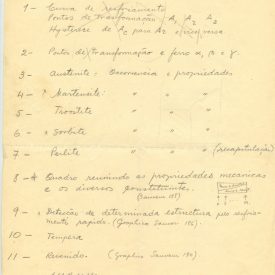 1 - Curva de resfriamento
Pontos de transformação A1 A2 A3
Hysterese de A2 para A2 e vice versa
2 - Pontos de transformação e ferro α, β = γ.
3 - austenite: Ocorrencia e propriedades
4 - ? Martensite: " " "
5 - Troostite " " "
6 - Sorbite " " "
7 - Perlite " " " (recapitulação)
8 - * Quadro reunindo as propriedades mecanicas
e os diversos constituintes.
9 - Deteção de determinada estructura pelo resfria-
mento rapido. (Graphico
10 - Tempera
11 - Revenido. (Graphico